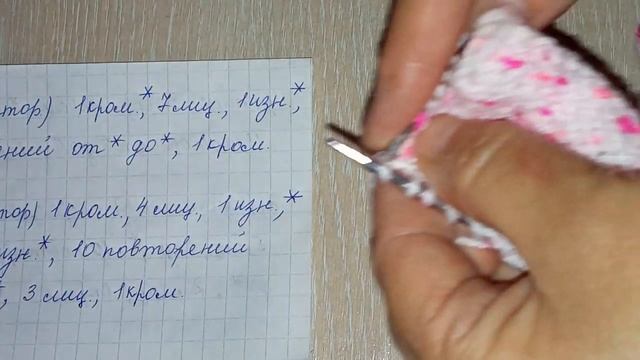 тор) 1 кром.,* 7 лиц., 1 изн.,*
ний от * до *, 1 кром.
тор) 1 кром., 4 лиц., 1 изн.,*
изн.*, 10 повторений
, 3 лиц., 1 кром.